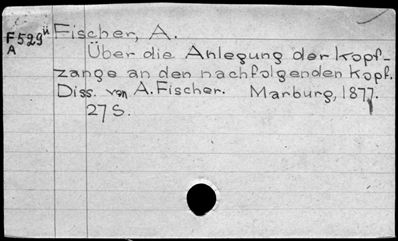 F529ü Fischer, A.
A Über die Anlegung der Kopf-
zange an den nachfolgenden Kopf.
Diss. von A. Fischer. Marburg, 1877.
27 S.